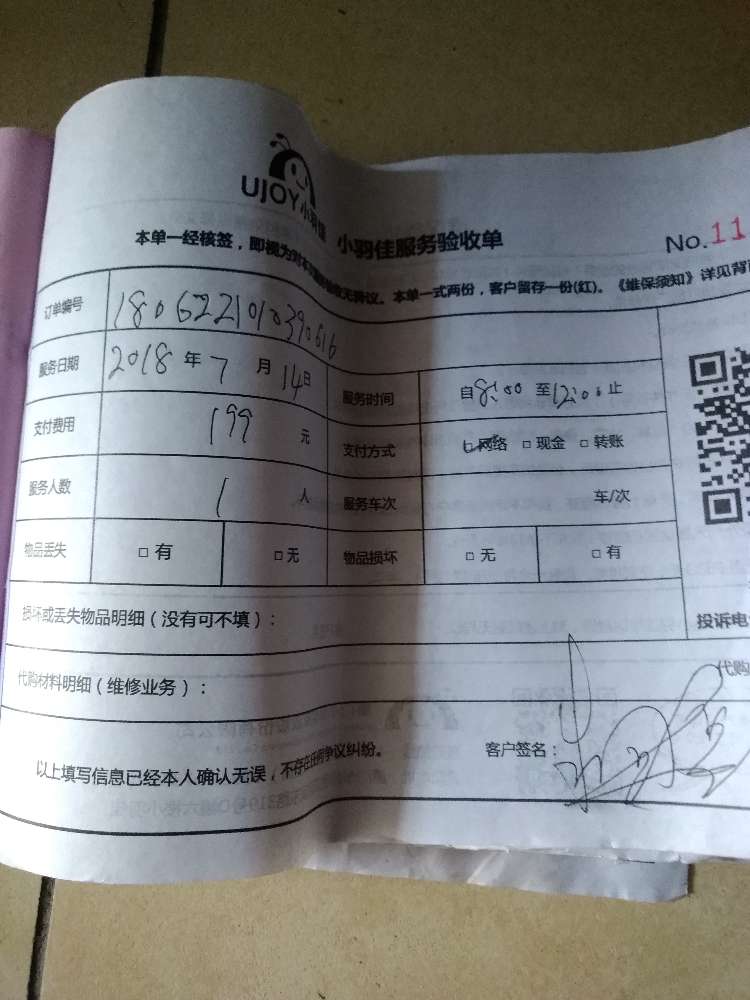 UJOY小羽佳
小羽佳服务验收单
No.11
本单一经核签，即视为对本次服务验收无异议。本单一式两份，客户留存一份(红)。《维保须知》详见背
订单编号 180622101039061 6
服务日期 2018年7月14日 服务时间 自8:00至12:00止
支付费用 199元 支付方式 网络 □现金 □转账
服务人数 1人 服务车次 车/次
物品丢失 □有 □无 物品损坏 □无 □有
损坏或丢失物品明细（没有可不填）：
投诉电
代购材料明细（维修业务）：
代购
以上填写信息已经本人确认无误，不存在任何争议纠纷。
客户签名：